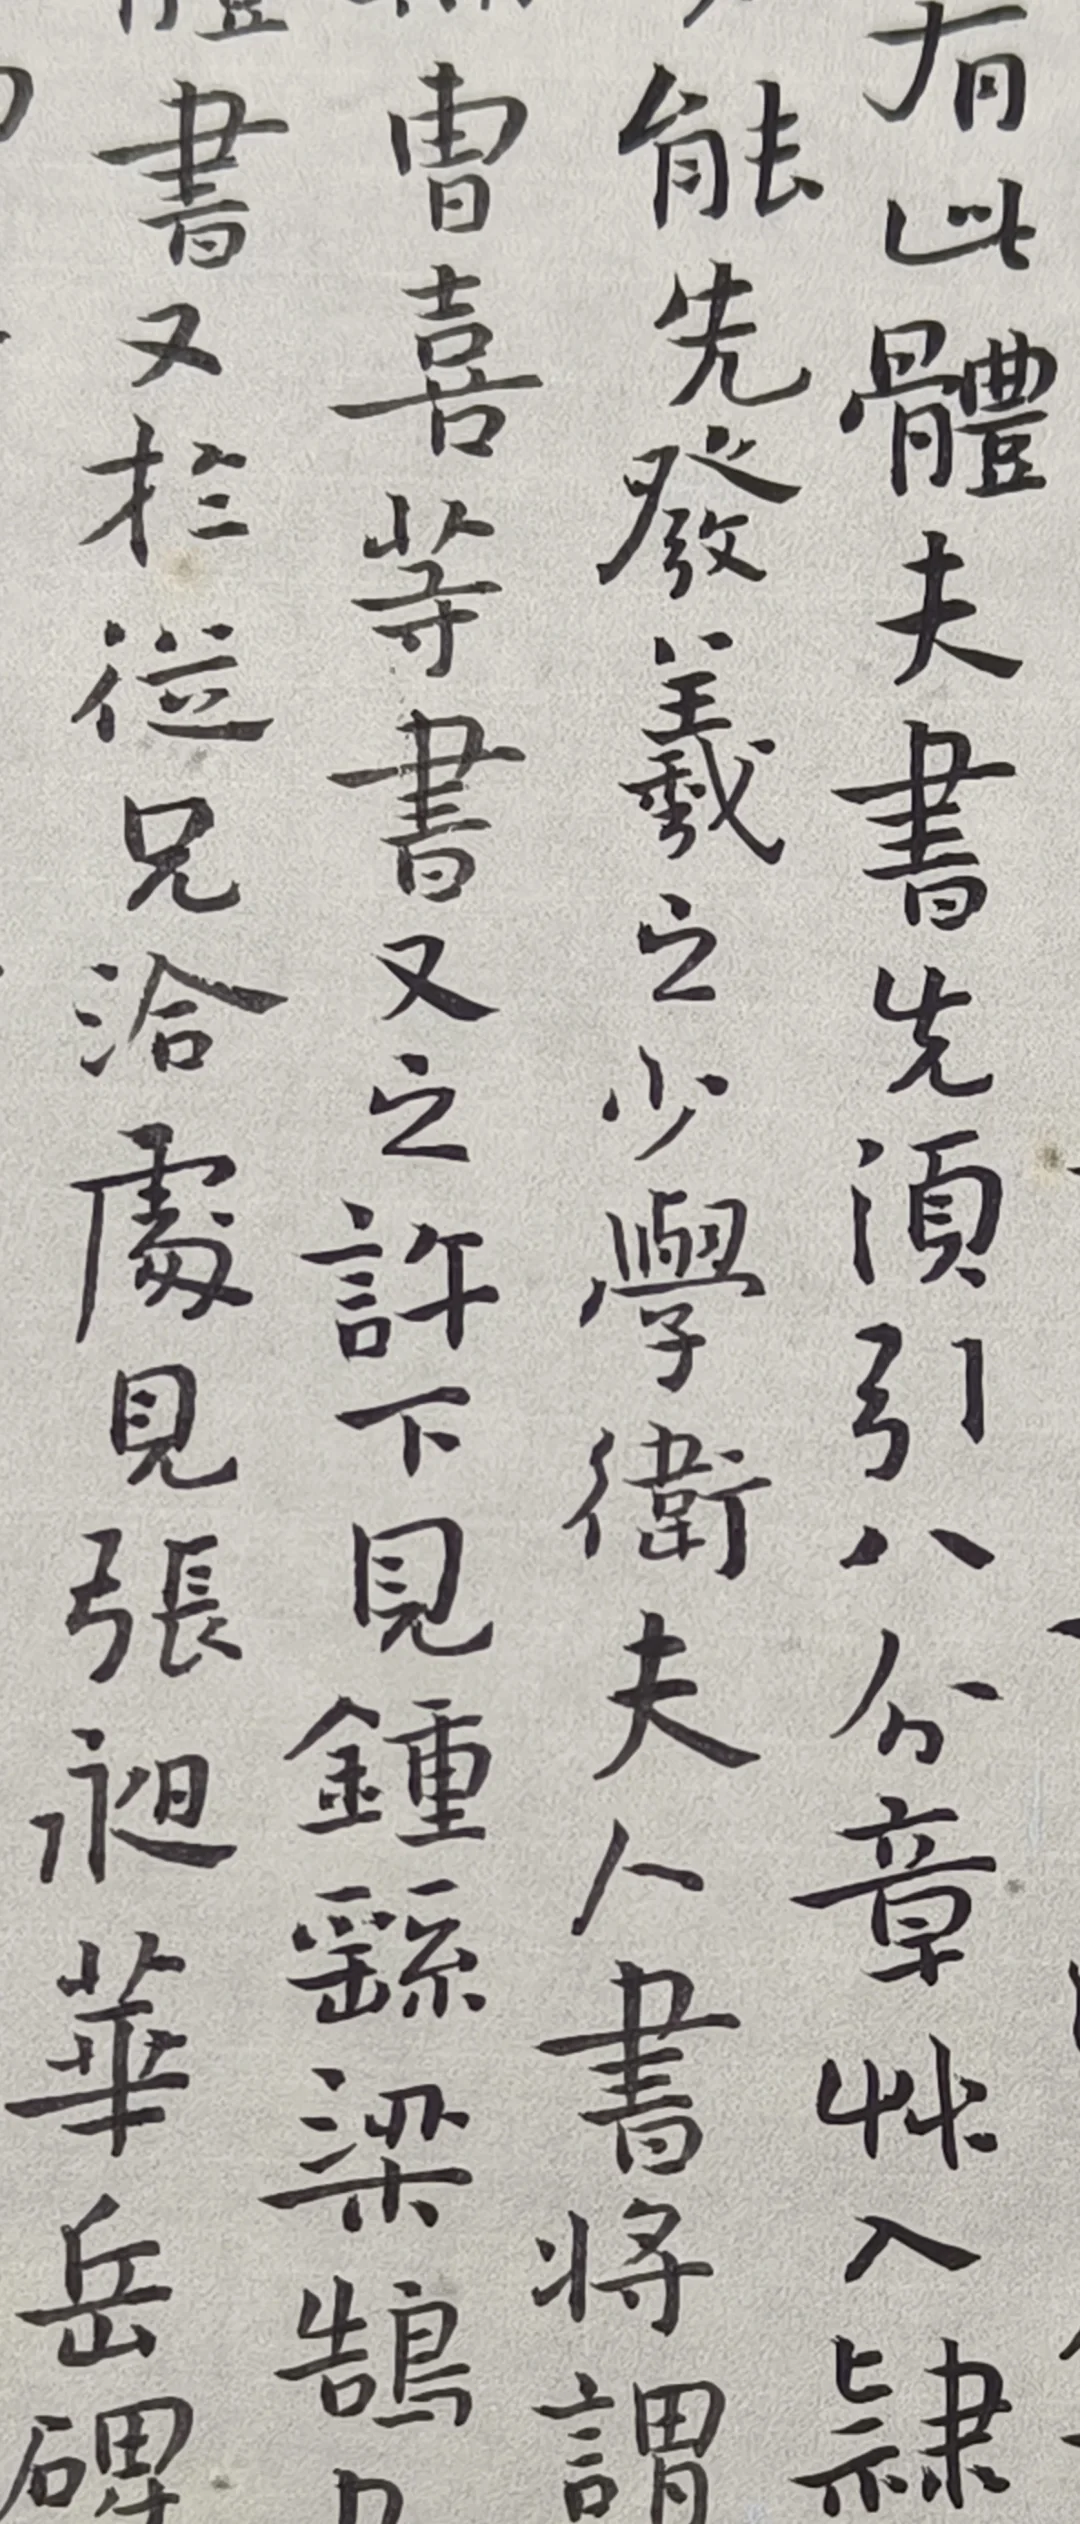 有此體夫書先須引八分章艸入隸
能先發羲之少學衛夫人書將謂
曹喜等書又之許下見鍾繇梁鵠
書又於從兄洽處見張昶華岳碑